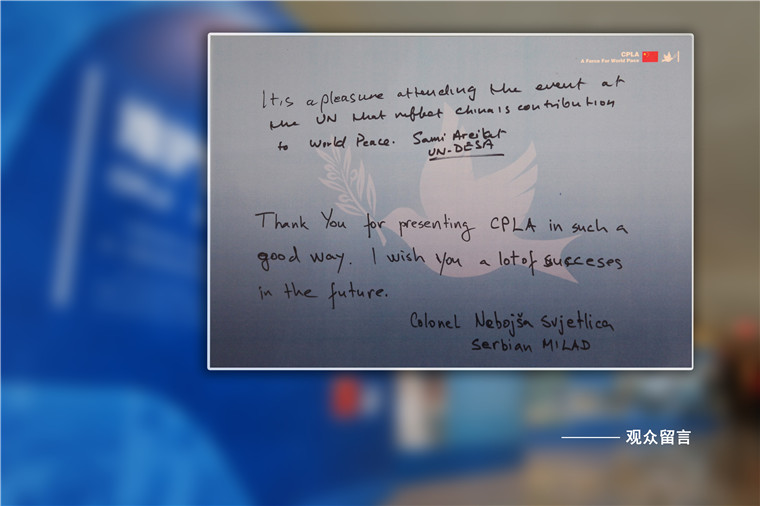 CPLA
A Force For World Peace
It is a pleasure attending the event at
the UN that reflect China's contribution
to World Peace. Sami Areikat
UN-DESA
Thank You for presenting CPLA in such a
good way. I wish you a lot of succeses
in the future.
Colonel Nebojša Svjetlica
Serbian MILAD
观众留言